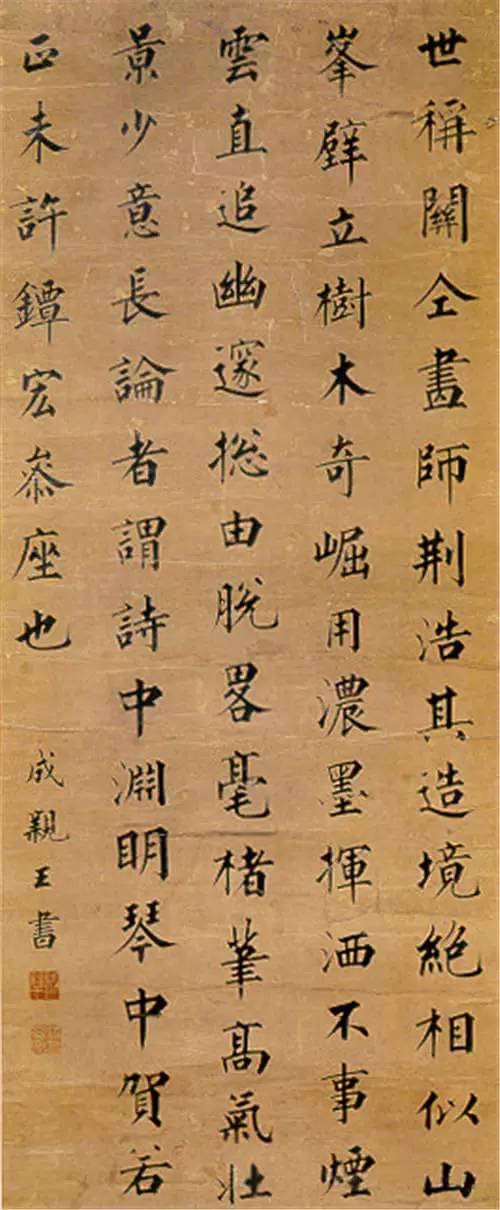 世稱關仝畫師荆浩其造境絶相似山
峯壁立樹木奇崛用濃墨揮洒不事煙
雲直追幽邃揔由脫畧毫楮筆髙氣壯
景少意長論者謂詩中淵明琴中賀若
正未許鐔宏叅座也
成親王書